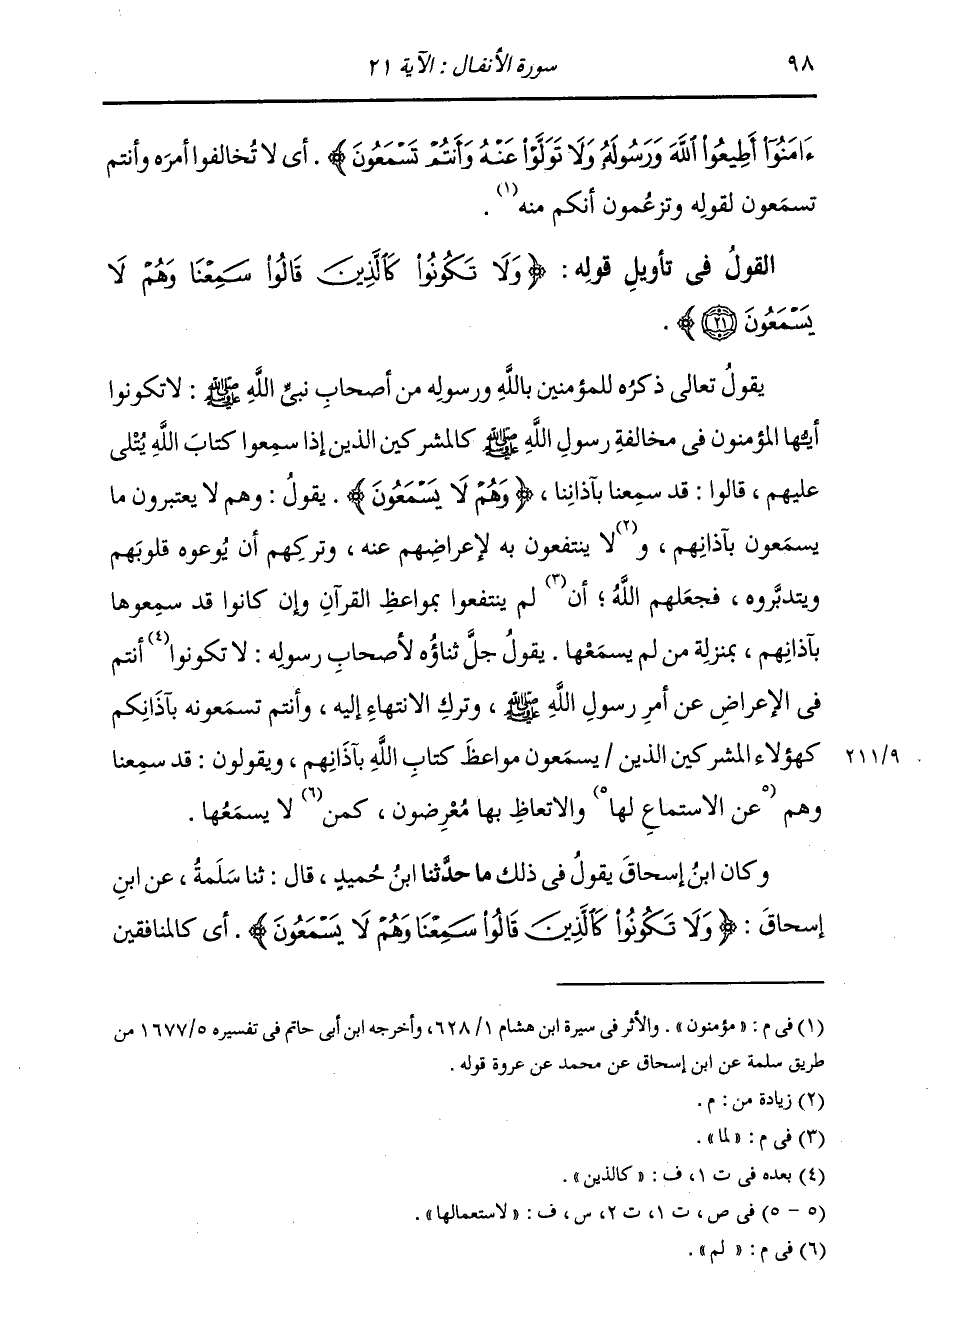 ٩٨
سورة الأنفال : الآية ٢١
ءَامَنُوٓا۟ أَطِيعُوا۟ ٱللَّهَ وَرَسُولَهُۥ وَلَا تَوَلَّوْا۟ عَنْهُ وَأَنتُمْ تَسْمَعُونَ ﴾ . أى لا تُخالفوا أمرَه وأنتم
تسمَعون لقولِه وتزعُمون أنكم منه(١) .
القولُ فى تأويلِ قولِه : ﴿ وَلَا تَكُونُوا۟ كَٱلَّذِينَ قَالُوا۟ سَمِعْنَا وَهُمْ لَا
يَسْمَعُونَ ٢١ ﴾ .
يقولُ تعالى ذكرُه للمؤمنين باللَّهِ ورسولِه من أصحابِ نبىِّ اللَّهِ ﷺ : لا تكونوا
أيُّها المؤمنون فى مخالفةِ رسولِ اللَّهِ ﷺ كالمشركين الذين إذا سمِعوا كتابَ اللَّهِ يُتْلى
عليهم ، قالوا : قد سمِعنا بآذانِنا ، ﴿ وَهُمْ لَا يَسْمَعُونَ ﴾ . يقولُ : وهم لا يعتبرون ما
يسمَعون بآذانِهم ، و(٢)لا ينتفعون به لإعراضِهم عنه ، وتركِهم أن يُوعوه قلوبَهم
ويتدبَّروه ، فجعَلهم اللَّهُ ؛ أن(٣) لم ينتفعوا بمواعظِ القرآنِ وإن كانوا قد سمِعوها
بآذانِهم ، بمنزلةِ من لم يسمَعْها . يقولُ جلَّ ثناؤُه لأصحابِ رسولِه : لا تكونوا(٤) أنتم
فى الإعراضِ عن أمرِ رسولِ اللَّهِ ﷺ ، وتركِ الانتهاءِ إليه ، وأنتم تسمَعونه بآذَانِكم
كهؤلاء المشركين الذين / يسمَعون مواعظَ كتابِ اللَّهِ بآذَانِهم ، ويقولون : قد سمِعنا
٢١١/٩
وهم (٥عن الاستماعِ لها٥) والاتعاظِ بها مُعْرِضون ، كمن(٦) لا يسمَعُها .
وكان ابنُ إسحاقَ يقولُ فى ذلك ما حدَّثنا ابنُ حُميدٍ ، قال : ثنا سَلَمةُ ، عن ابنِ
إسحاقَ : ﴿ وَلَا تَكُونُوا۟ كَٱلَّذِينَ قَالُوا۟ سَمِعْنَا وَهُمْ لَا يَسْمَعُونَ ﴾ . أى كالمنافقين
(١) فى م : «مؤمنون» . والأثر فى سيرة ابن هشام ١/ ٦٢٨، وأخرجه ابن أبى حاتم فى تفسيره ١٦٧٧/٥ من
طريق سلمة عن ابن إسحاق عن محمد عن عروة قوله .
(٢) زيادة من : م .
(٣) فى م : «لما» .
(٤) بعده فى ت ١، ف : «كالذين» .
(٥ - ٥) فى ص، ت ١، ت ٢، س، ف : «لاستعمالها» .
(٦) فى م : «لم» .